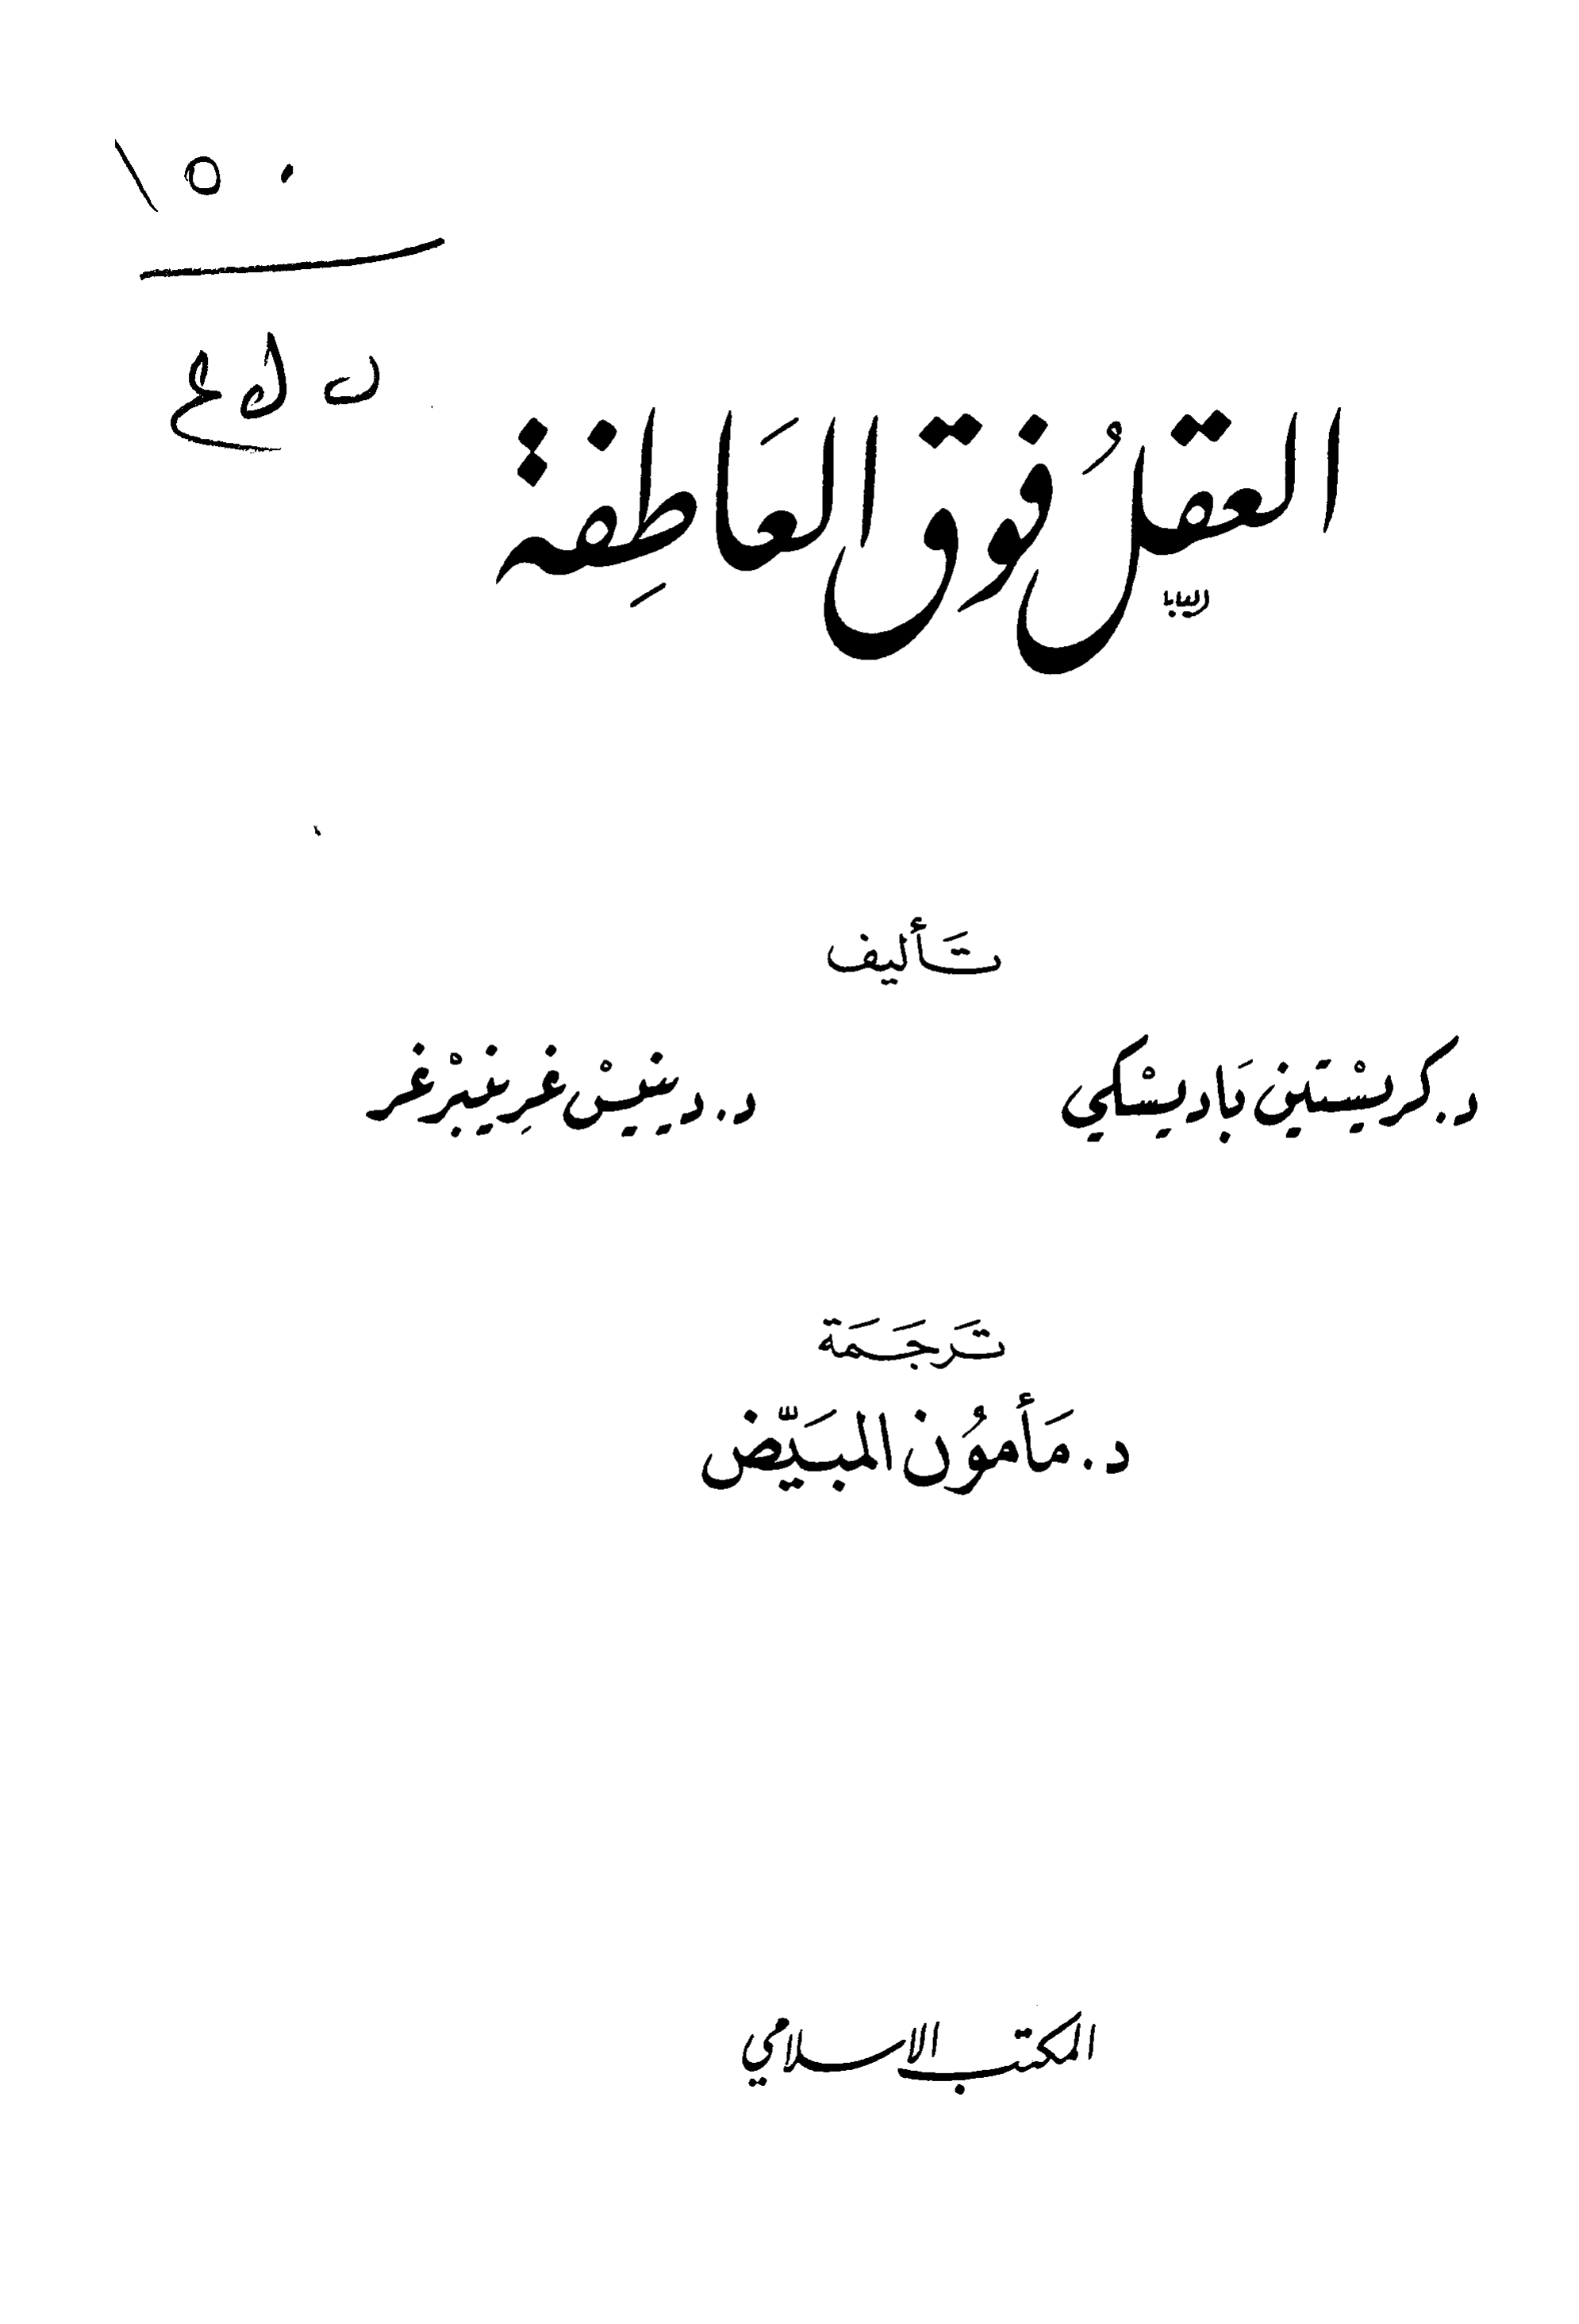 ١٥٠
العقلُ فوق العَاطِفة
تَأليف
د. كريسْتَين بَاديسْكي
د. دينيسْ غرِينيبرْغر
تَرجَمَة
د. مَأموُن المبَيّض
المكتب الاسلامي